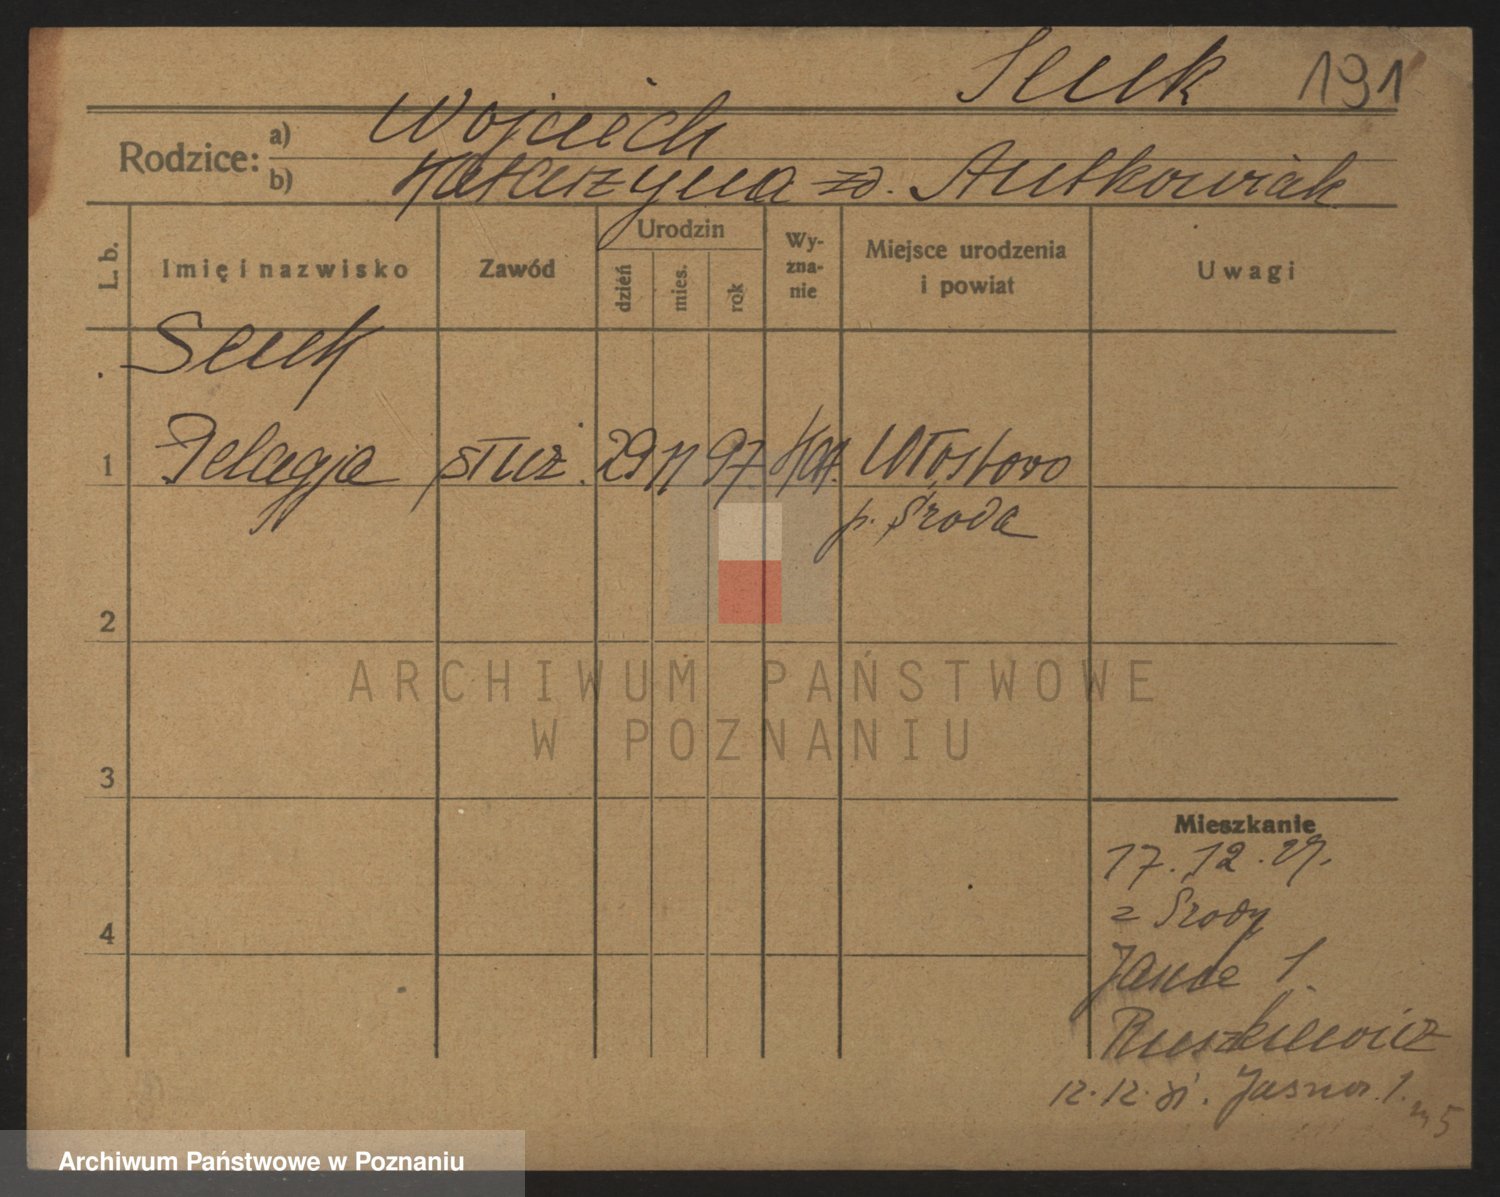 Senk 191
Rodzice: a) Wojciech
b) Katarzyna zd. Antkowiak
L. b.
Imię i nazwisko
Zawód
Urodzin
dzień
mies.
rok
Wy-
zna-
nie
Miejsce urodzenia
i powiat
Uwagi
Senk
1 Pelagja służ. 29 11 97. kat. Włostowo
p. Środa
2
3
4
ARCHIWUM PAŃSTWOWE
W POZNANIU
Mieszkanie
17.12.29.
z Środy
1.
Ruszkiewicz
12.12.31. Jasna 1.
m 5
Archiwum Państwowe w Poznaniu